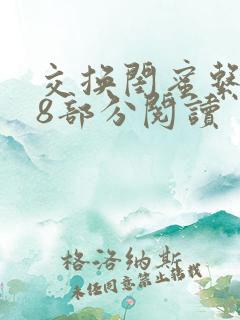 交换閨蜜繫
8部分閱讀
格洛纳斯
未经同意禁止转载